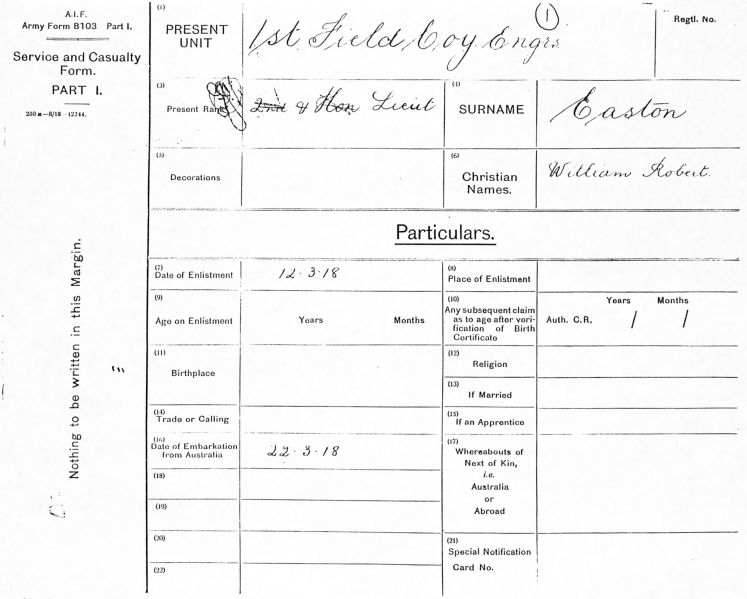 A.I.F.
Army Form B103 Part I.
Service and Casualty
Form.
PART I.
200 m—8/18—12244.
Nothing to be written in this Margin.
(1)
PRESENT
UNIT
1st Field Coy Engrs.
1
Regtl. No.
(3)
Present Rank
2nd & Hon Lieut
(4)
SURNAME
Easton
(5)
Decorations
(6)
Christian
Names.
William Robert.
Particulars.
(7)
Date of Enlistment
12.3.18
(8)
Place of Enlistment
(9)
Age on Enlistment
Years Months
(10)
Any subsequent claim
as to age after veri-
fication of Birth
Certificate
Years Months
Auth. C.R, / /
(11)
Birthplace
(12)
Religion
(13)
If Married
(14)
Trade or Calling
(15)
If an Apprentice
(16)
Date of Embarkation
from Australia
22.3.18
(17)
Whereabouts of
Next of Kin,
i.e.
Australia
or
Abroad
(18)
(19)
(20)
(21)
Special Notification
Card No.
(22)